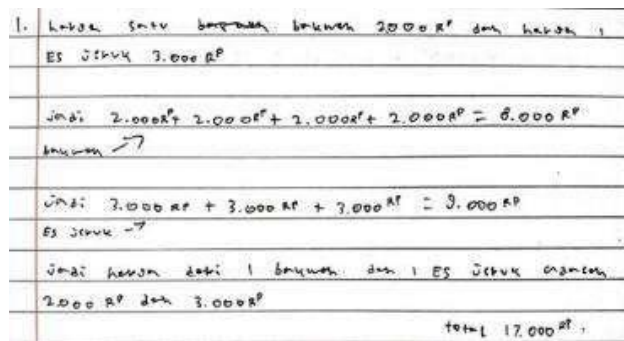 1. harga satu bakwan 2000 RP dan harga 1
ES jeruk 3.000 RP
jadi 2.000RP+ 2.000RP+ 2.000RP+ 2.000RP = 8.000 RP
bakwan →
jadi 3.000 RP + 3.000 RP + 3.000 RP = 9.000 RP
ES jeruk →
jadi harga dari 1 bakwan dan 1 ES jeruk adalah
2.000 RP dan 3.000RP
total 17.000 RP.